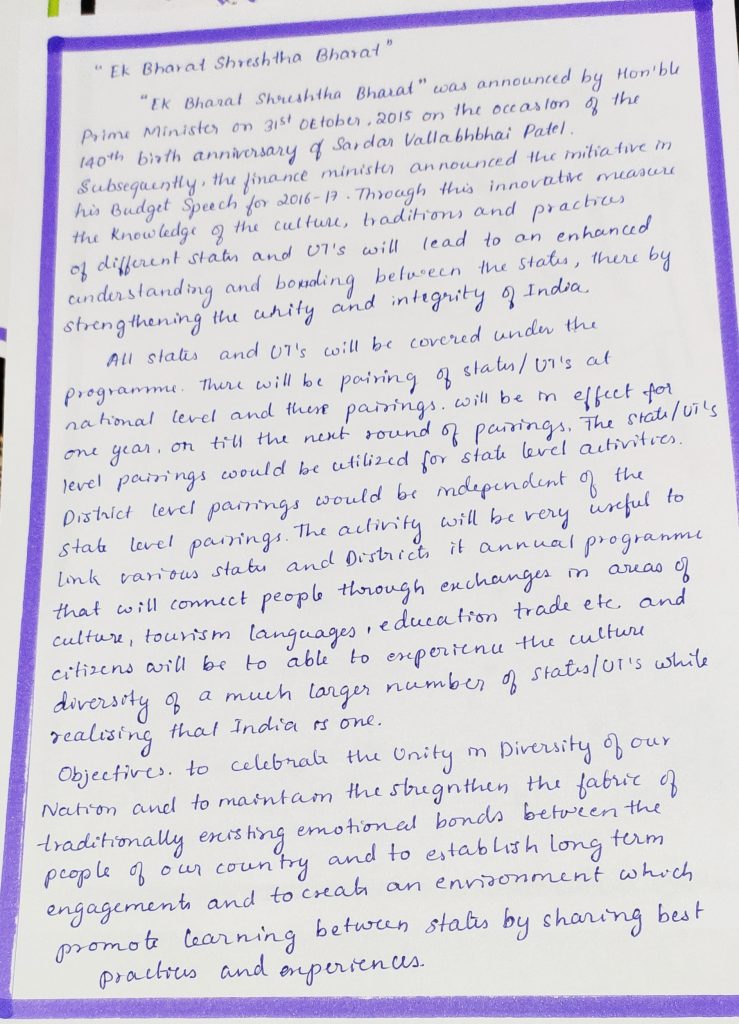 "Ek Bharat Shreshtha Bharat"
"Ek Bharat Shreshtha Bharat" was announced by Hon'ble
Prime Minister on 31st October, 2015 on the occasion of the
140th birth anniversary of Sardar Vallabhbhai Patel.
Subsequently, the finance minister announced the initiative in
his Budget Speech for 2016-17. Through this innovative measure
the knowledge of the culture, traditions and practices
of different states and UT's will lead to an enhanced
understanding and bonding between the states, there by
strengthening the unity and integrity of India.
All states and UT's will be covered under the
programme. There will be pairing of states/UT's at
national level and these pairings. will be in effect for
one year, or till the next round of pairings. The state/UT's
level pairings would be utilized for state level activities.
District level pairings would be independent of the
state level pairings. The activity will be very useful to
link various states and Districts it annual programme
that will connect people through exchanges in areas of
culture, tourism languages, education trade etc. and
citizens will be to able to experience the culture
diversity of a much larger number of states/UT's while
realising that India is one.
Objectives. to celebrate the Unity in Diversity of our
Nation and to maintain the stregnthen the fabric of
traditionally existing emotional bonds between the
people of our country and to establish long term
engagements and to create an environment which
promote learning between states by sharing best
practices and experiences.